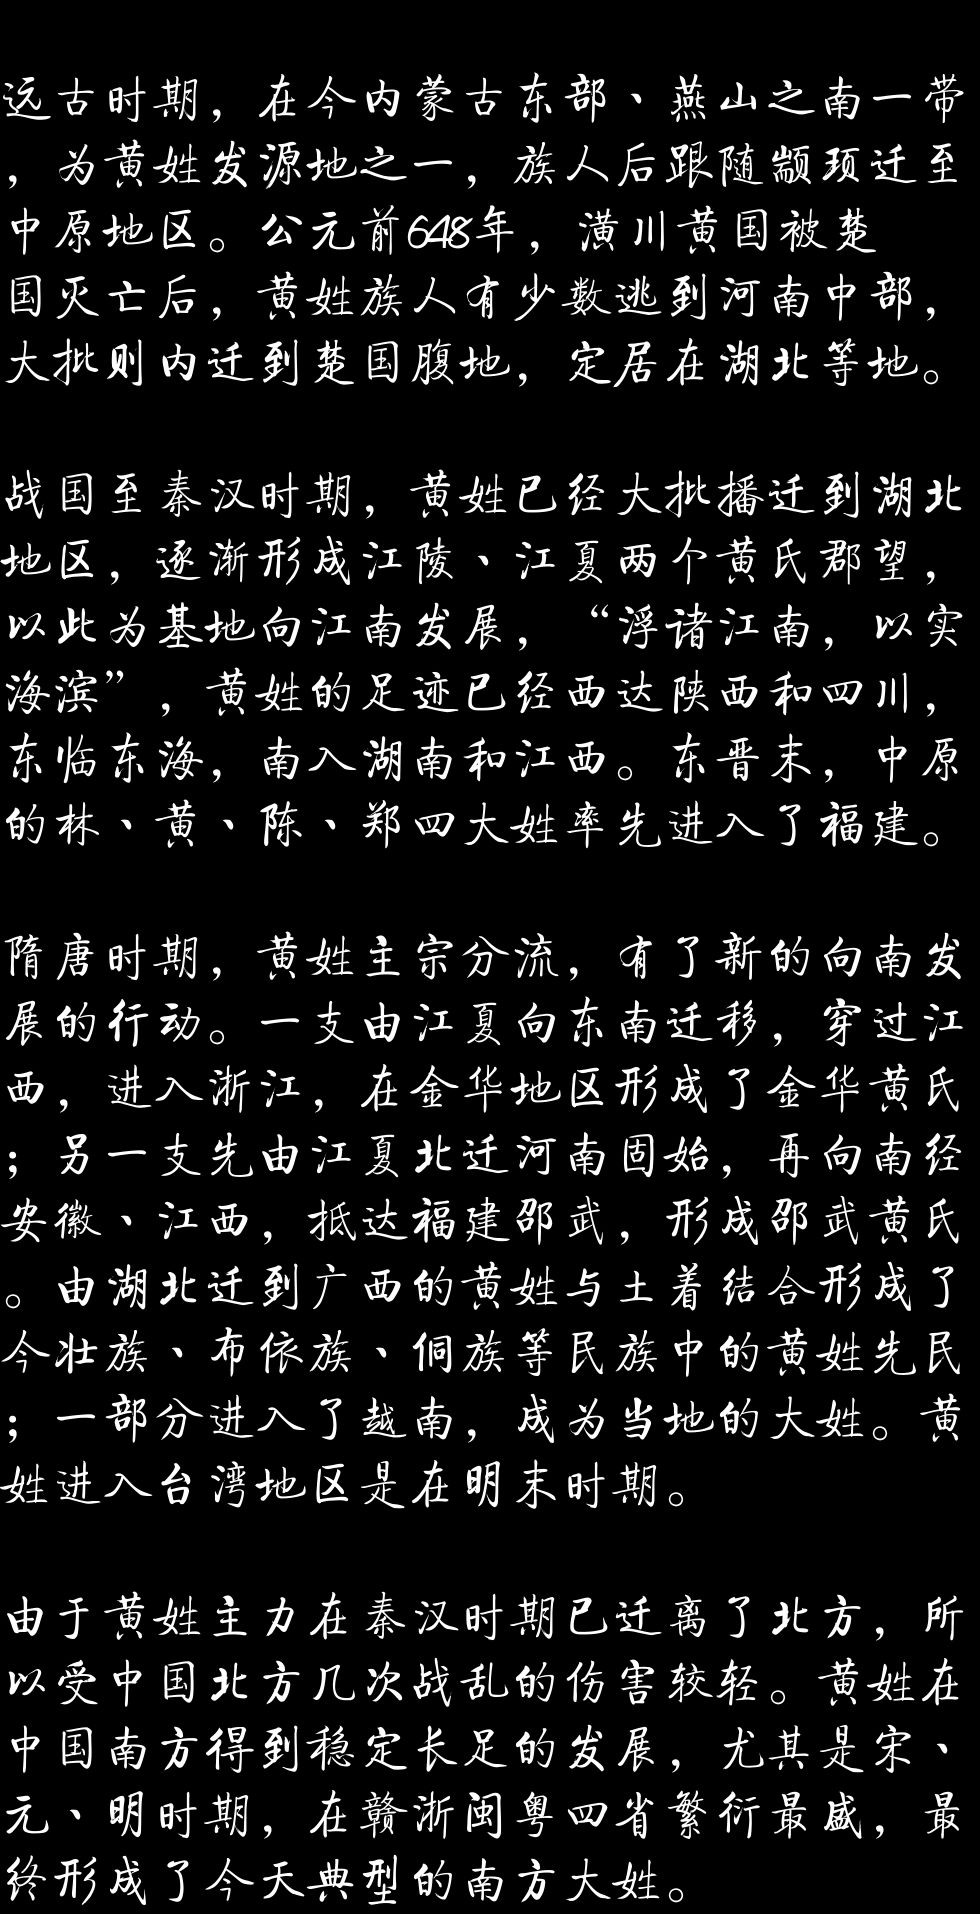 远古时期，在今内蒙古东部、燕山之南一带
，为黄姓发源地之一，族人后跟随颛顼迁至
中原地区。公元前648年，潢川黄国被楚
国灭亡后，黄姓族人有少数逃到河南中部，
大批则内迁到楚国腹地，定居在湖北等地。
战国至秦汉时期，黄姓已经大批播迁到湖北
地区，逐渐形成江陵、江夏两个黄氏郡望，
以此为基地向江南发展，“浮诸江南，以实
海滨”，黄姓的足迹已经西达陕西和四川，
东临东海，南入湖南和江西。东晋末，中原
的林、黄、陈、郑四大姓率先进入了福建。
隋唐时期，黄姓主宗分流，有了新的向南发
展的行动。一支由江夏向东南迁移，穿过江
西，进入浙江，在金华地区形成了金华黄氏
；另一支先由江夏北迁河南固始，再向南经
安徽、江西，抵达福建邵武，形成邵武黄氏
。由湖北迁到广西的黄姓与土着结合形成了
今壮族、布依族、侗族等民族中的黄姓先民
；一部分进入了越南，成为当地的大姓。黄
姓进入台湾地区是在明末时期。
由于黄姓主力在秦汉时期已迁离了北方，所
以受中国北方几次战乱的伤害较轻。黄姓在
中国南方得到稳定长足的发展，尤其是宋、
元、明时期，在赣浙闽粤四省繁衍最盛，最
终形成了今天典型的南方大姓。